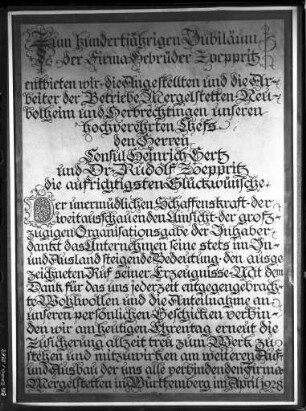 Zum hundertjährigen Jubiläum
der Firma Gebrüder Zoeppritz
entbieten wir die Angestellten und die Ar-
beiter der Betriebe Mergelstetten-Neu-
bolheim und Herbrechtingen unseren
hochverehrten Chefs
den Herren
Consul Heinrich Gertz
und Dr. Rudolf Zoeppritz
die aufrichtigsten Glückwünsche.
Der unermüdlichen Schaffenskraft der
weitausschauenden Umsicht der groß-
zügigen Organisationsgabe der Inhaber
dankt das Unternehmen seine stets im In-
und Ausland steigende Bedeutung den ausge
zeichneten Ruf seiner Erzeugnisse. Mit dem
Dank für das uns jederzeit entgegengebrach-
te Wohlwollen und die Anteilnahme an
unseren persönlichen Geschicken verbin-
den wir am heutigen Ehrentag erneut die
Zusicherung allzeit treu zum Werk zu
stehen und mitzuwirken am weiteren Auf-
und Ausbau der uns alle verbindenden Firma
Mergelstetten in Württemberg im April 1928